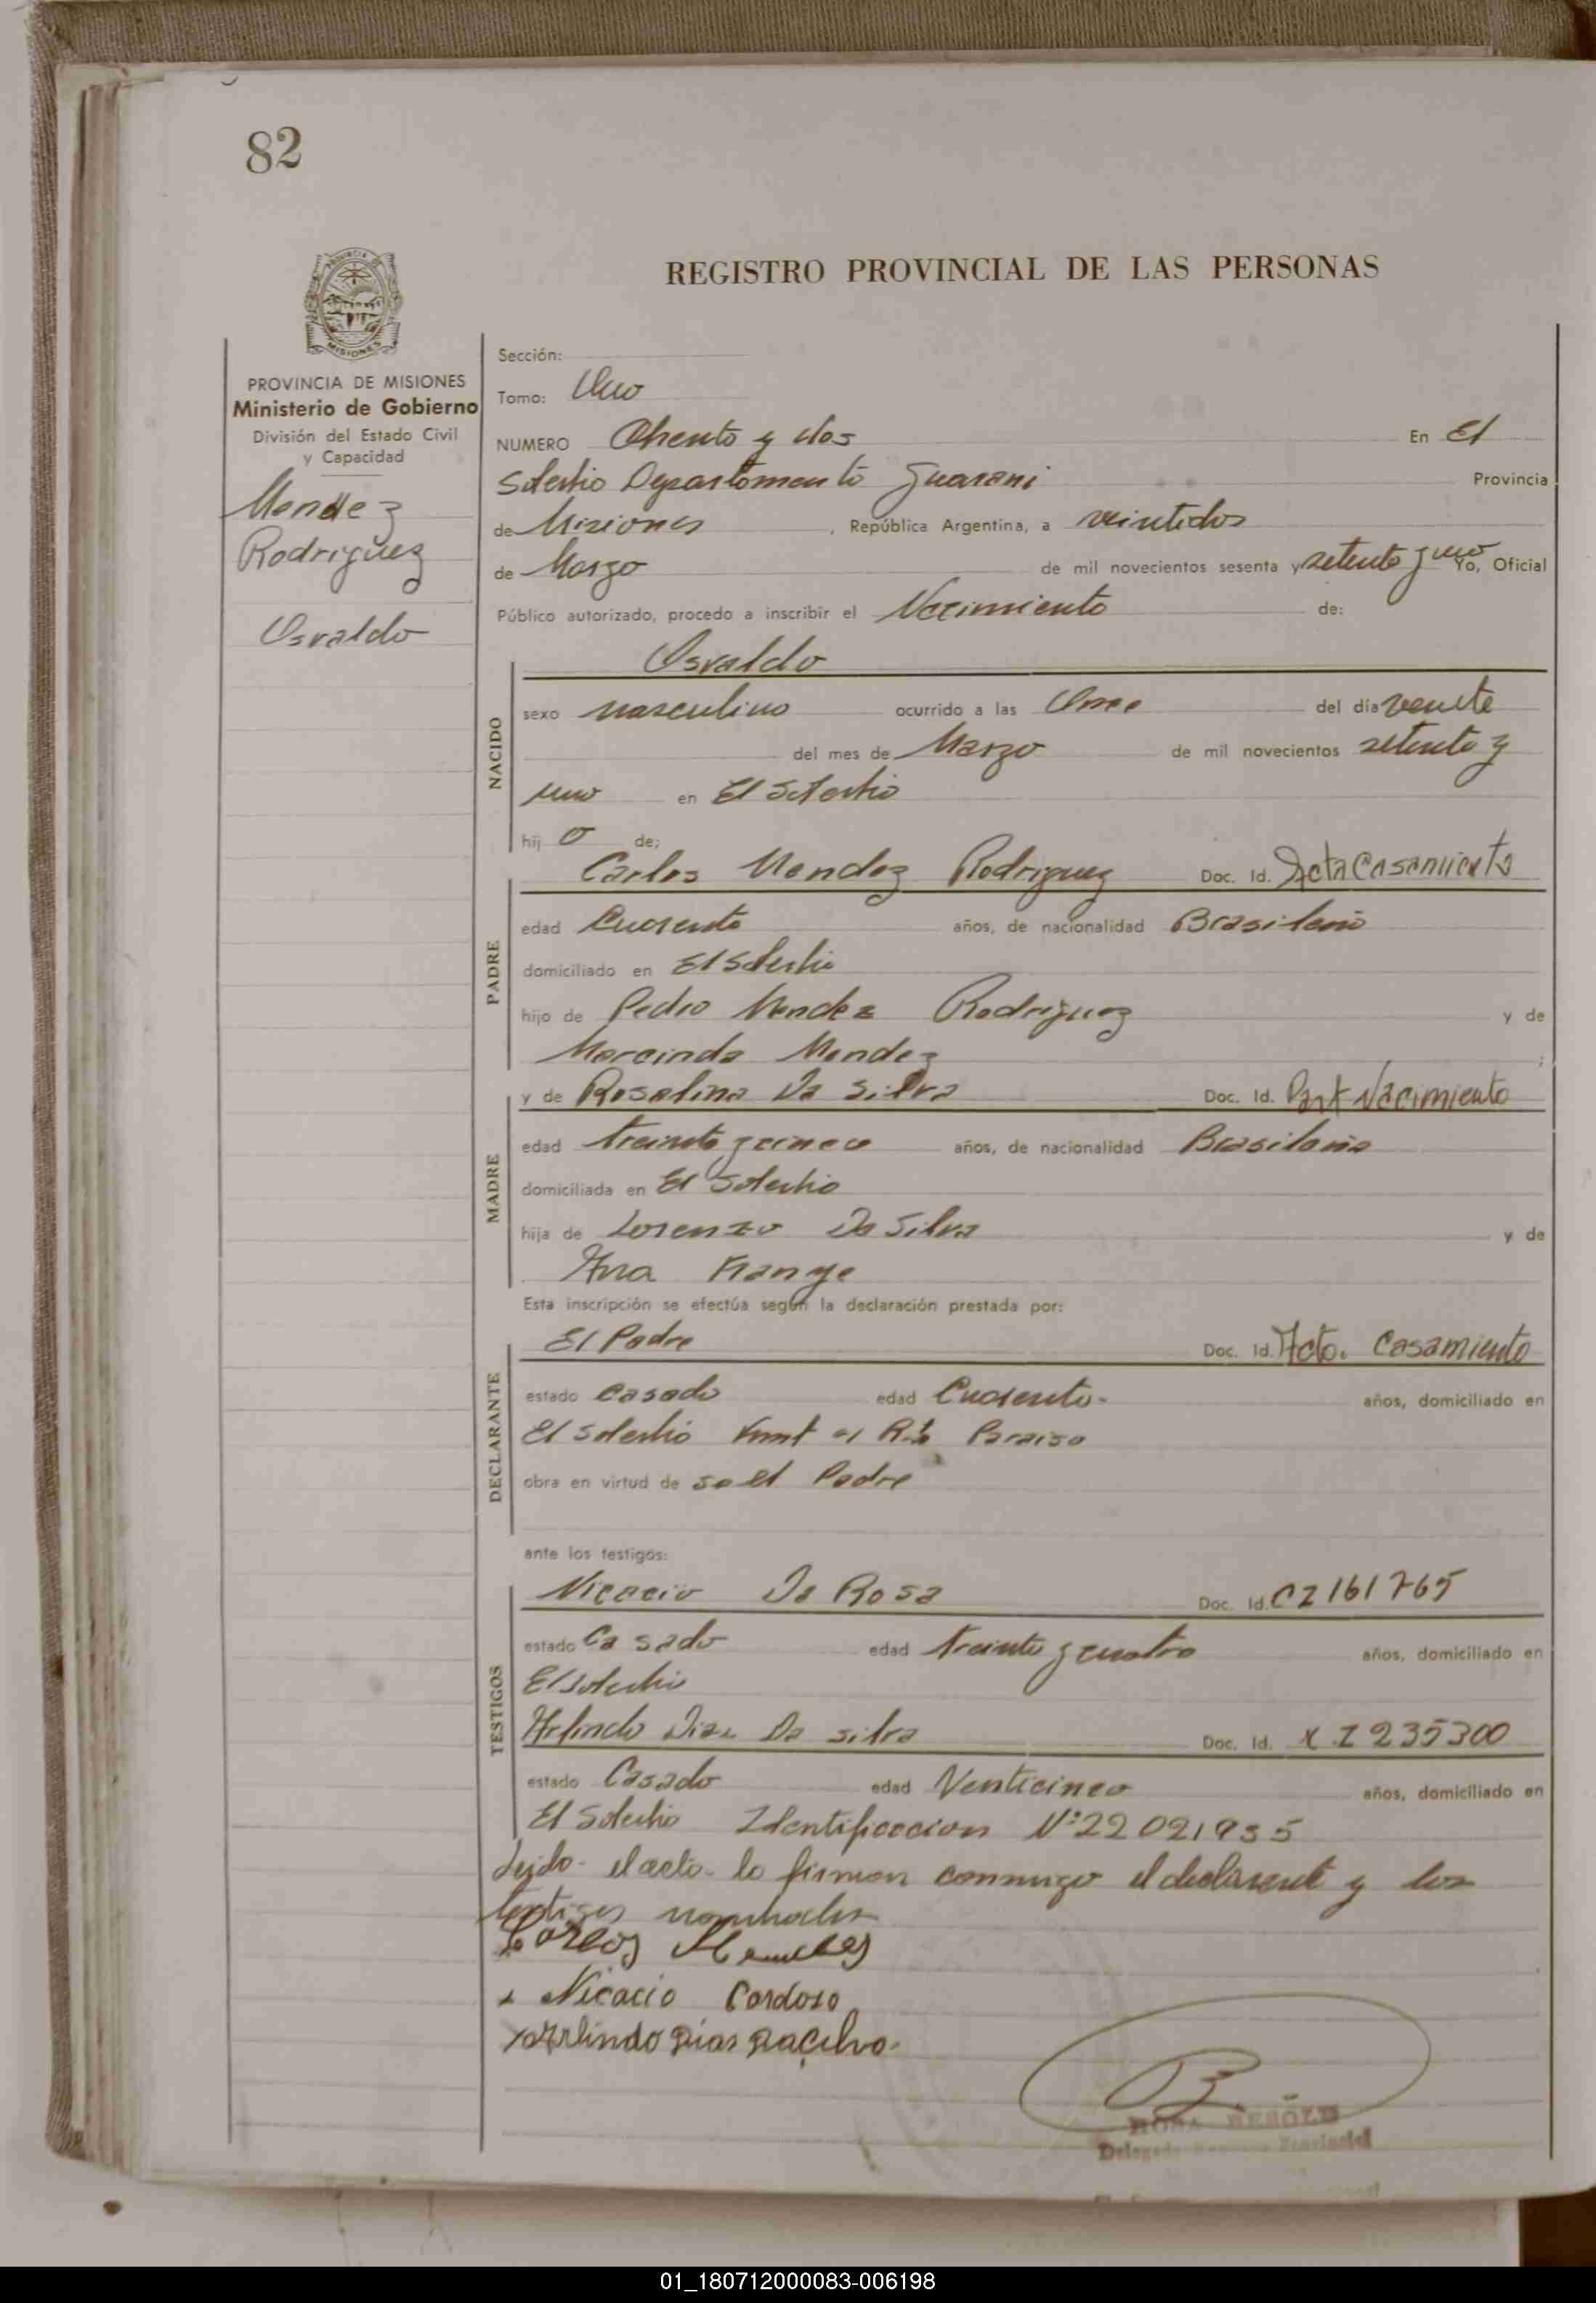 82
REGISTRO PROVINCIAL DE LAS PERSONAS
MISIONES
PROVINCIA DE MISIONES
Ministerio de Gobierno
División del Estado Civil
y Capacidad
Mendez
Rodriguez
Osvaldo
Sección:
Tomo: Uno
NUMERO Ohento y dos En El
Soberbio Departamento Guarani Provincia
de Misiones, República Argentina, a veintidos
de Marzo de mil novecientos sesenta y setenta y uno Yo, Oficial
Público autorizado, procedo a inscribir el Nacimiento de:
NACIDO
Osvaldo
sexo masculino ocurrido a las Once del día veinte
del mes de Marzo de mil novecientos setenta y
uno en El Soberbio
hij o de;
PADRE
Carlos Mendez Rodriguez Doc. Id. Acta Casamiento
edad Cuarenta años, de nacionalidad Brasileño
domiciliado en El Soberbio
hijo de Pedro Mendez Rodriguez y de
Marcinda Mendez ;
MADRE
y de Rosalina Da Silva Doc. Id. Part Nacimiento
edad treinta y cinco años, de nacionalidad Brasileña
domiciliada en El Soberbio
hija de Lorenzo Da Silva y de
Ana
Esta inscripción se efectúa según la declaración prestada por:
DECLARANTE
El Padre Doc. Id. Acta. Casamiento
estado Casado edad Cuarenta- años, domiciliado en
El Soberbio Paraiso
obra en virtud de se el Padre
ante los testigos:
TESTIGOS
Nicacio Da Rosa Doc. Id. CZ 161765
estado Casado edad treinta y cuatro años, domiciliado en
El Soberbio
Arlindo Diaz Da Silva Doc. Id. X I 235300
estado Casado edad Venticinco años, domiciliado en
El Soberbio Identificacion Nº 22 021935
Leido- el acta- lo firman conmigo el declarante y los
testigos nombrados
Carlos Mendes
x Nicacio Cardoso
x Arlindo Dias Da Çilva.
ROSA
Provincial
01_180712000083-006198